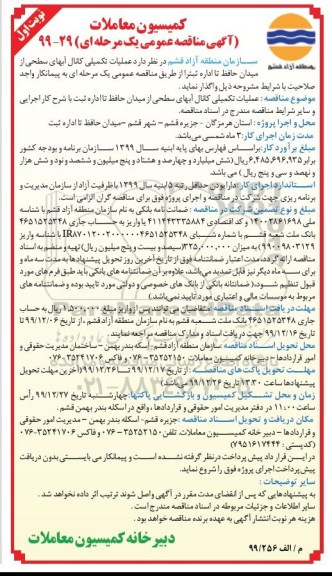 نوبت اول
کمیسیون معاملات
(آگهی مناقصه عمومی یک مرحله ای) ۲۹-۹۹
سازمان منطقه آزاد قشم در نظر دارد عملیات تکمیلی کانال آبهای سطحی از
میدان حافظ تا اداره ثبت را از طریق مناقصه عمومی یک مرحله ای به پیمانکار واجد
صلاحیت با شرایط مشروحه ذیل واگذار نماید.
موضوع مناقصه: عملیات تکمیلی کانال آبهای سطحی از میدان حافظ تا اداره ثبت با شرح کار اجرایی
و سایر شرایط مناقصه مندرج در اسناد مناقصه.
محل و اجرا پروژه: استان هرمزگان - جزیره قشم - شهر قشم - میدان حافظ تا اداره ثبت
مدت زمان اجرای کار: ۳ ماه شمسی می‌باشد.
مبلغ برآورد کار: براساس فهارس بهای پایه ابنیه سال ۱۳۹۹ سازمان برنامه و بودجه کشور
۶,۴۸۵,۶۹۶,۹۳۵ ریال (شش میلیارد و چهارصد و هشتاد و پنج میلیون و ششصد و نود و شش هزار
و نهصد و سی و پنج ریال) می باشد.
استاندارد اجرای کار: دارا بودن حداقل رتبه ۵ ابنیه سال ۱۳۹۹ با ظرفیت آزاد از سازمان مدیریت و
برنامه ریزی جهت شرکت در مناقصه و اجرای پروژه فوق برای مناقصه گران الزامی است.
مبلغ و نوع تضمین شرکت در مناقصه: ضمانت نامه بانکی به نام سازمان منطقه آزاد قشم با شناسه
ملی و کد اقتصادی یا واریز به حساب جاری ۴۶۵۱۵۲۵۳۴۸
بانک ملت شعبه قشم با شماره شبای با شناسه واریز
به میزان ۳۲۵,۰۰۰,۰۰۰ (سیصد و بیست و پنج میلیون ریال) تهیه و تسلیم به اسناد
مناقصه ارائه گردد، مدت اعتبار ضمانتنامه فوق از تاریخ آخرین روز تحویل پیشنهادها به مدت سه ماه و
برای سه ماه دیگر نیز قابل تمدید می‌باشد، علاوه بر آن ضمانتنامه های بانکی باید طبق فرم های مورد
قبول تنظیم شود. (ضمانتنامه بانکی از بانک های خصوصی و دولتی مورد تایید بوده و ضمانتنامه های
مربوط به موسسات مالی و اعتباری مورد تایید نمی‌باشد)
مهلت دریافت اسناد مناقصه: متقاضیان می توانند پس از واریز مبلغ ۱,۵۰۰,۰۰۰ ریال به حساب
جاری ۴۶۵۱۵۲۵۳۴۸ بانک ملت شعبه قشم به نام سازمان منطقه آزاد قشم، از تاریخ ۹۹/۱۲/۰۶ تا
تاریخ ۹۹/۱۲/۱۶ جهت دریافت اسناد و مدارک مناقصه مراجعه نمایند.
محل تحویل اسناد مناقصه: سازمان منطقه آزاد قشم- اسکله بندر بهمن - ساختمان مدیریت حقوقی و
امور قراردادها - دبیرخانه کمیسیون معاملات ۳۵۲۵۲۱۵۰-۰۷۶ و فاکس ۳۵۲۴۱۷۰۶-۰۷۶
مهلت تحویل پاکت های مناقصه: از تاریخ ۹۹/۱۲/۱۷ تا ۹۹/۱۲/۲۶ (آخرین مهلت تحویل
پیشنهادها ساعت ۱۳:۳۰ تاریخ ۹۹/۱۲/۲۶ می باشد)
زمان و محل تشکیل کمیسیون و بازگشایی پاکتها: چهارشنبه تاریخ ۹۹/۱۲/۲۷ رأس
ساعت ۱۱:۰۰ در دفتر مدیریت امور حقوقی و قراردادها، واقع در اسکله بندر بهمن قشم.
مکان دریافت و تحویل اسناد مناقصه: جزیره قشم- اسکله بندر بهمن - مدیریت امور حقوقی
و قراردادها - دبیر خانه کمیسیون معاملات. تلفن ۳۵۲۵۲۱۵۰-۰۷۶ و فاکس ۳۵۲۴۱۷۰۶-۰۷۶
(کدپستی: ۷۹۵۱۶۱۷۴۴۴)
در این قرار داد پیش پرداخت در نظر گرفته نشده است و پیمانکار می بایستی بدون دریافت
پیش پرداخت اجرای پروژه فوق را شروع نماید.
سایر توضیحات:
به پیشنهادهایی که پس از انقضای مدت مقرر در آگهی واصل شوند ترتیب اثر داده نخواهد شد.
سایر اطلاعات و جزئیات مربوطه در اسناد مناقصه مندرج است.
هزینه هر نوبت انتشار آگهی به عهده برنده مناقصه خواهد بود.
دبیر خانه کمیسیون معاملات
م / الف ۹۹/۲۵۶